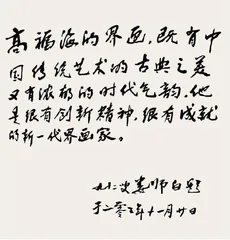 高福海的界画,既有中
国传统艺术的古典之美
又有浓郁的时代气韵。他
是很有创新精神,很有成就
的新一代界画家。
九二叟娄师白题
于二零年十一月廿日